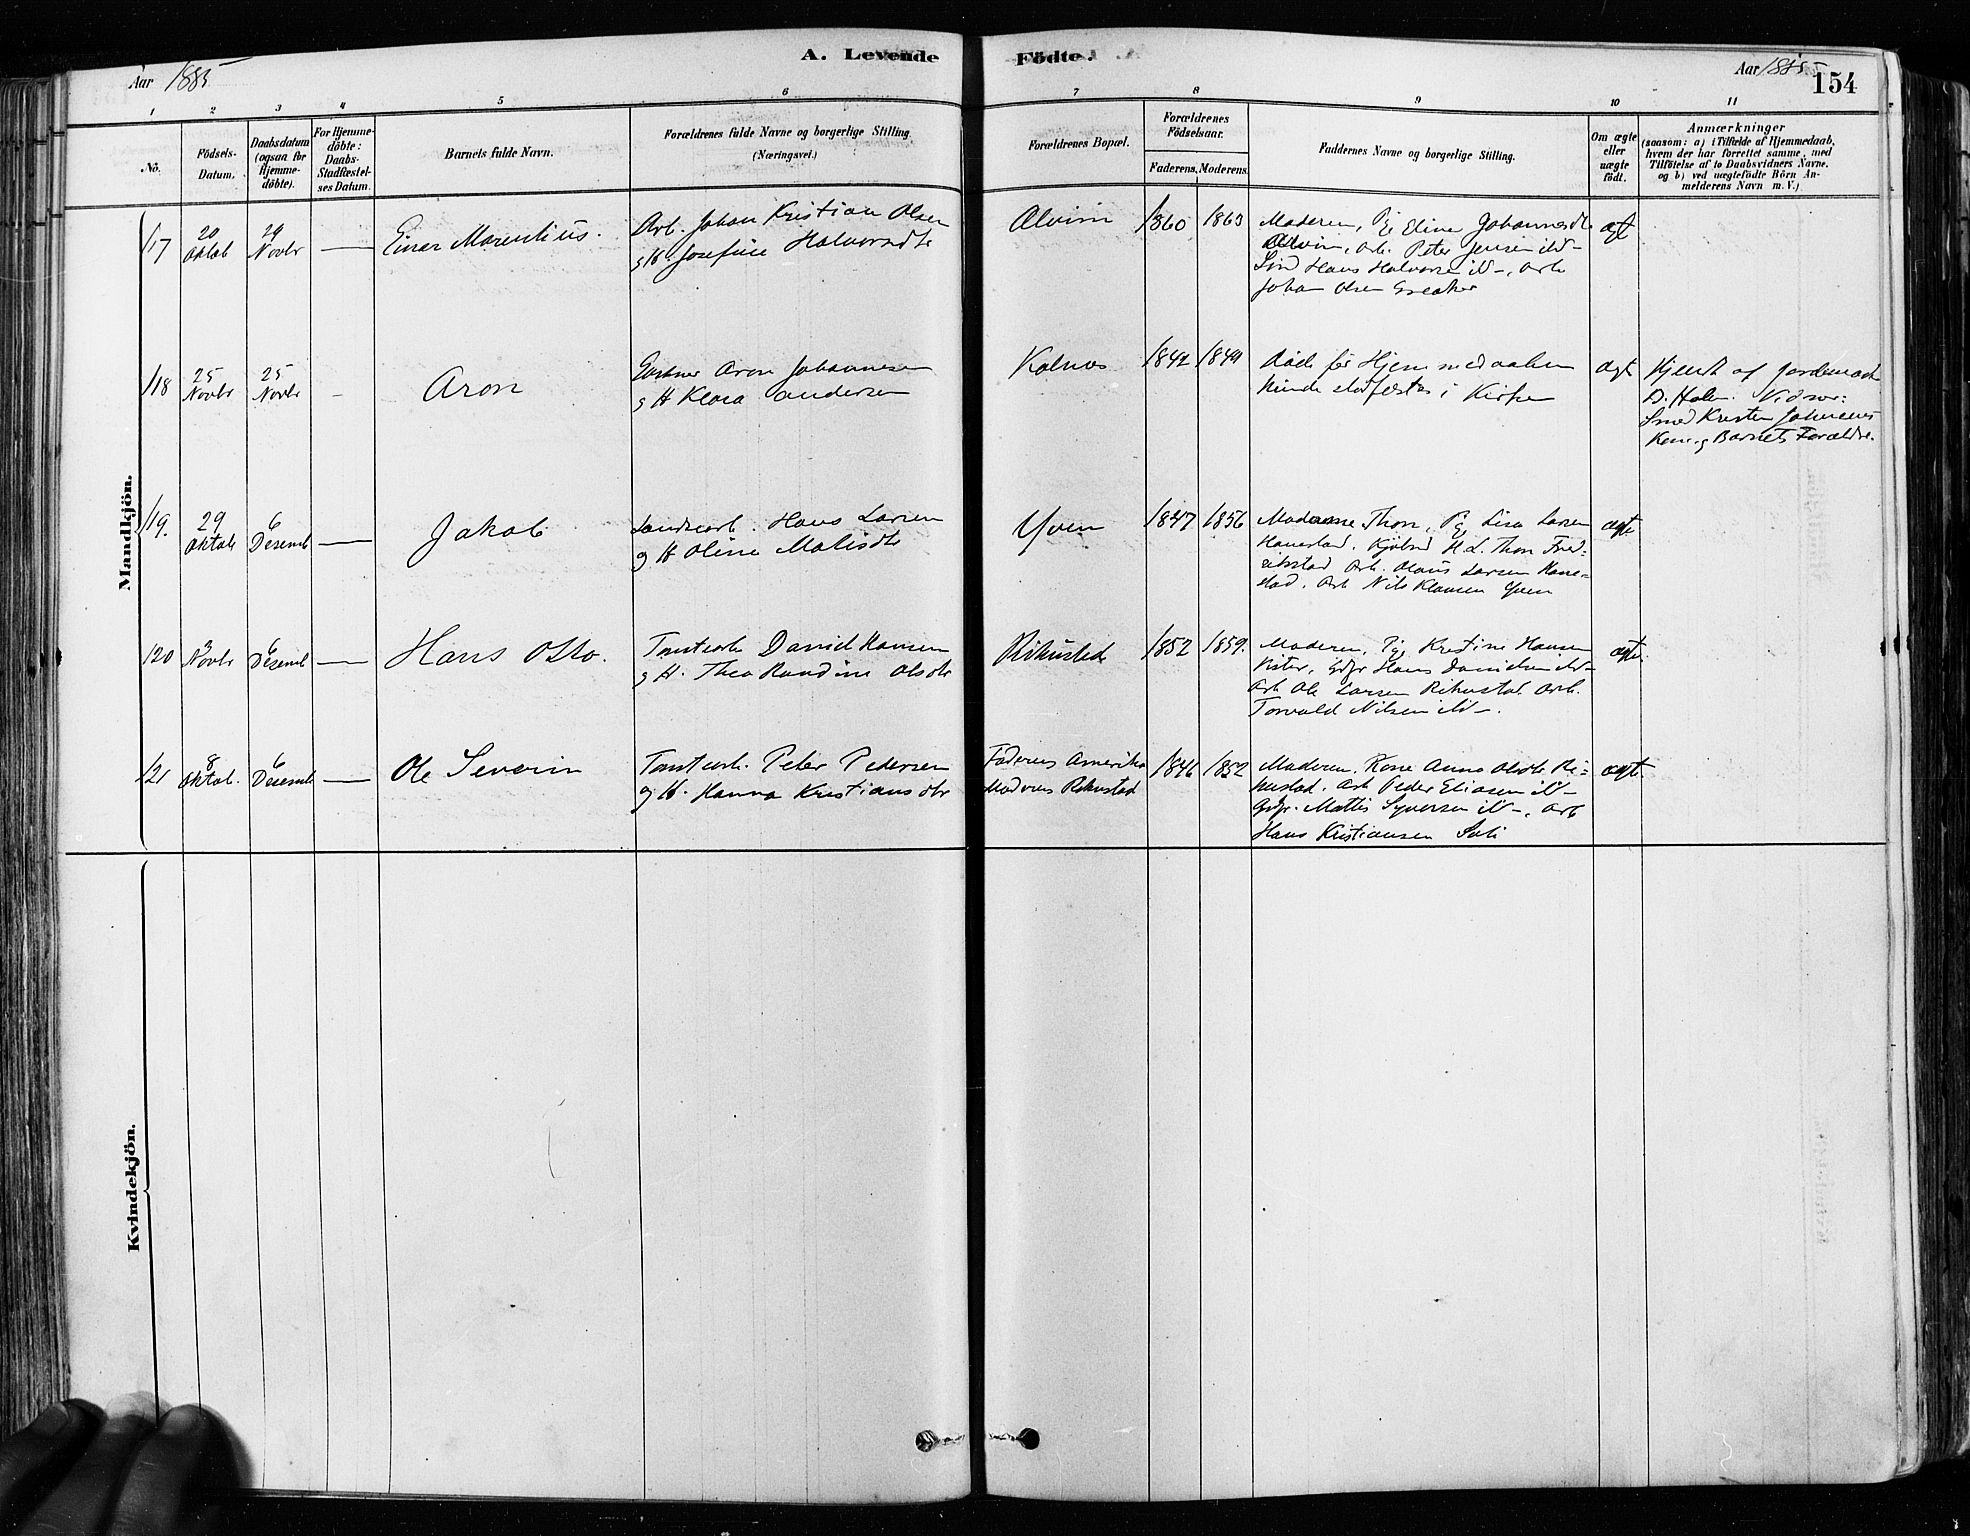 A. Levende Födte.
Aar 1885
Aar 1885
154
1 2 3 4 5 6 7 8 9 10 11
No.
Födsels-
Datum.
Daabsdatum
(ogsaa for
Hjemme-
döbte).
For Hjemme-
döbte:
Daabs-
Stadfæstel-
ses Datum.
Barnets fulde Navn.
Forældrenes fulde Navne og borgerlige Stilling.
(Næringsvei.)
Forældrenes Bopæl.
Forældrenes
Födselsaar.
Faderens.
Moderens.
Faddernes Navne og borgerlige Stilling.
Om ægte
eller
uægte
födt.
Anmærkninger
(saasom: a) i Tilfælde af Hjemmedaab,
hvem der har forrettet samme, med
Tilföielse af to Daabsvidners Navne.
og b) ved uægtefödte Börn An-
melderens Navn m. V.)
Mandkjön.
117
20
Oktob
29
Novbr
Einar Marentius.
Arb. Johan Kristian Olsen
og H. Josefine Halvorsdtr
Alvim
1860
1863
Moderen, Pg Eline Johannesdtr
Alvim, Arb. Peter Jensen ibd-
Hans Halvorsen ibd-, Arb
Johan Olsen Greaker
ægt
118
25
Novbr
25
Novbr
Aron
Gartner Aron Johannesen
og H Klara Andersen
Kalnes
1842
1844
Døde før Hjemmedaaben
kunde stadfestes i Kirken
ægt
Hjemd. af Jordemoder
D. Holm. Vidner:
Smed Kristen Johnsens
Kone og Barnets Forældre.
119.
29
Oktob
6
Desemb
Jakob
Hans Larsen
og H Oline Matisdtr
Yven
1847
1856
Madamme Thon, Pg Lisa Larsen
Hanestad. Kjøbmd H. L. Thon Fred-
rikstad Arb. Olaus Larsen Hane-
stad. Arb Nils Klausen Yven
ægt.
120
3
Novbr
6
Desemb
Hans Otto.
Tomtearb David Hansen
og H. Thea Randine Olsdtr
Rikustad
1852
1859.
Moderen, Pg Kristine Hansen
Kister, Gdgr Hans Danielsen ibd-
Arb Ole Larsen Rikustad Arb.
Torvald Nilsen ibd-.
ægt.
121
8
Oktob.
6
Desemb
Ole Severin
Tomtearb. Peter Pedersen
og H. Hanna Kristiansdtr
Faderens Amerika
Moderens Rikustad
1846
1852
Moderen. Kone Anna Olsdtr Ri-
kustad. Arb Peder Eliasen ibd-
Gdgr. Mattis Syversen ibd-, Arb
Hans Kristiansen Soli
ægt.
Kvindekjön.